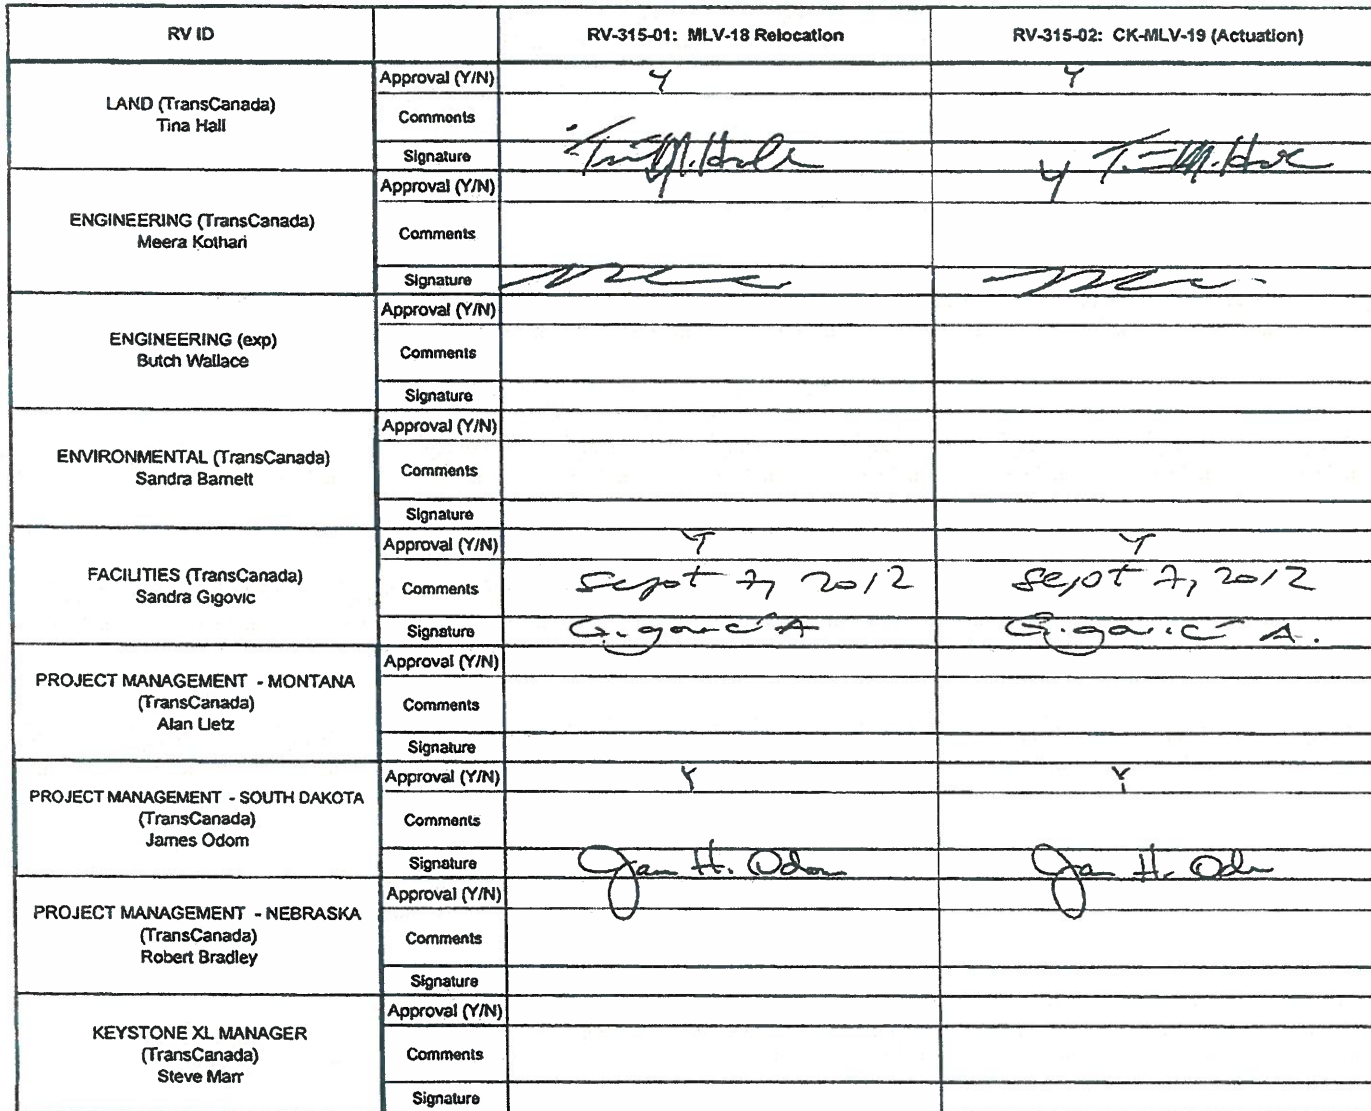 RV ID RV-315-01: MLV-18 Relocation RV-315-02: CK-MLV-19 (Actuation)
LAND (TransCanada)
Tina Hall
Approval (Y/N) Y Y
Comments
Signature Tina M. Hall Tina M. Hall
ENGINEERING (TransCanada)
Meera Kothari
Approval (Y/N) Y Y
Comments
Signature
ENGINEERING (exp)
Butch Wallace
Approval (Y/N)
Comments
Signature
ENVIRONMENTAL (TransCanada)
Sandra Barnett
Approval (Y/N)
Comments
Signature
FACILITIES (TransCanada)
Sandra Gigovic
Approval (Y/N) Y Y
Comments Sept 7, 2012 Sept 7, 2012
Signature Gigović A Gigović A.
PROJECT MANAGEMENT - MONTANA
(TransCanada)
Alan Lietz
Approval (Y/N)
Comments
Signature
PROJECT MANAGEMENT - SOUTH DAKOTA
(TransCanada)
James Odom
Approval (Y/N) Y Y
Comments
Signature Jam H. Odom Ja H. Odom
PROJECT MANAGEMENT - NEBRASKA
(TransCanada)
Robert Bradley
Approval (Y/N)
Comments
Signature
KEYSTONE XL MANAGER
(TransCanada)
Steve Marr
Approval (Y/N)
Comments
Signature